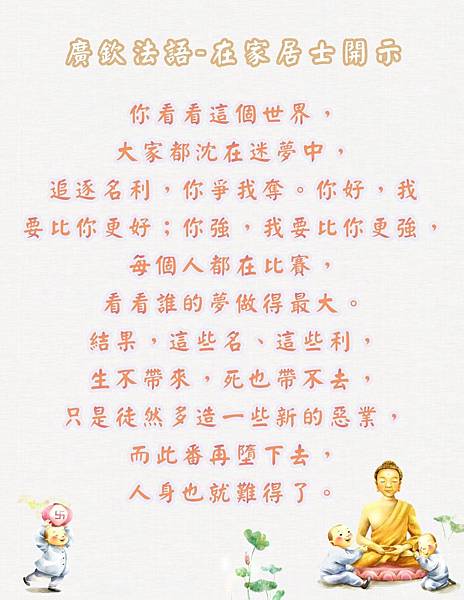 廣欽法語-在家居士開示
你看看這個世界，
大家都沈在迷夢中，
追逐名利，你爭我奪。你好，我
要比你更好；你強，我要比你更強，
每個人都在比賽，
看看誰的夢做得最大。
結果，這些名、這些利，
生不帶來，死也帶不去，
只是徒然多造一些新的惡業，
而此番再墮下去，
人身也就難得了。
卐